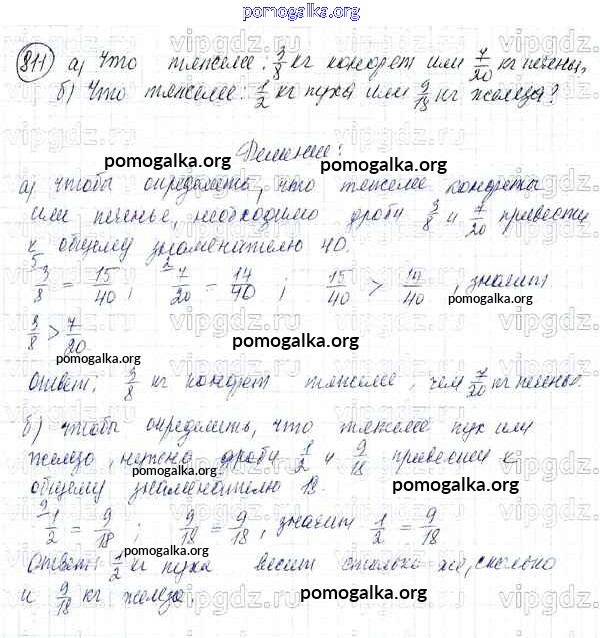 pomogalka.org
811) а) Что тяжелее: 3/8 кг конфет или 7/20 кг печенья,
б) Что тяжелее: 1/2 кг пуха или 9/18 кг железа?
Решение:
pomogalka.org
pomogalka.org
а) чтобы определить, что тяжелее конфеты
или печенье, необходимо дроби 3/8 и 7/20 привести
к общему знаменателю 40.
pomogalka.org
5 3/8 = 15/40 ; 2 7/20 = 14/40 ; 15/40 > 14/40 , значит
pomogalka.org
3/8 > 7/20
pomogalka.org
pomogalka.org
Ответ: 3/8 кг конфет тяжелее, чем 7/20 кг печенья.
б) чтобы определить, что тяжелее пух или
железо, нужно дроби 1/2 и 9/18 привести к
pomogalka.org
общему знаменателю 18.
pomogalka.org
9 1/2 = 9/18 ; 9/18 = 9/18 , значит 1/2 = 9/18
pomogalka.org
Ответ: 1/2 кг пуха весит столько же, сколько
и 9/18 кг железа.
pomogalka.org
pomogalka.org
vipgdz.ru